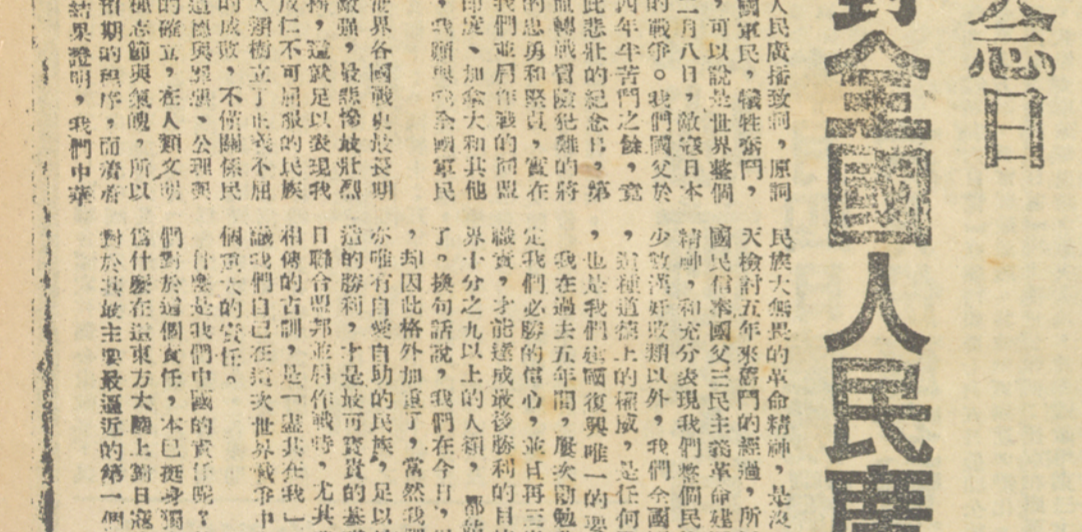 念日
對全國人民廣
人民廣播致詞，原詞
國軍民，犧牲奮鬥，
，可以說是世界整個
二月八日，敵寇日本
的戰爭。我們國父於
四年半苦鬥之餘，竟
此悲壯的紀念日，第
旋轉戰冒險犯難的將
的忠勇和堅貞，實在
我們並肩作戰的同盟
印度、加拿大和其他
，我願與我全國軍民
世界各國戰史最長期
敵強，最悲慘最壯烈
，這就足以表現我
成仁不可屈服的民族
人類樹立了正義不屈
的成敗，不僅關係民
道德與罪惡、公理與
的確立，在人類文明
志節與氣魄，所以
預期的程序，而濟着
結果證明，我們中華
民族大無畏的革命精神，是沒
天檢討五年來奮鬥的經過，所
國民信奉國父三民主義革命建
精神，和充分表現我們整個民
少數漢奸敗類以外，我們全國
，這種道德上的權威，是任何
，也是我們建國復興唯一的要
我在過去五年間，屢次勖勉
定我們必勝的信心，並且再三
職責，才能達成最後勝利的目
界十分之九以上的人類，都
了。換句話說，我們在今日，
，却因此格外加重了，當然我
亦唯有自愛自助的民族，足以
遠的勝利，才是最可寶貴的基
日聯合盟邦並肩作戰時，尤其
相傳的古訓，是「盡其在我」
識我們自己在這次世界戰爭中
個重大的責任。
什麼是我們中國的責任呢？
們對於這個責任，本已挺身獨
為什麼在這東方大陸上對日寇
對於其最主要最逼近的第一個